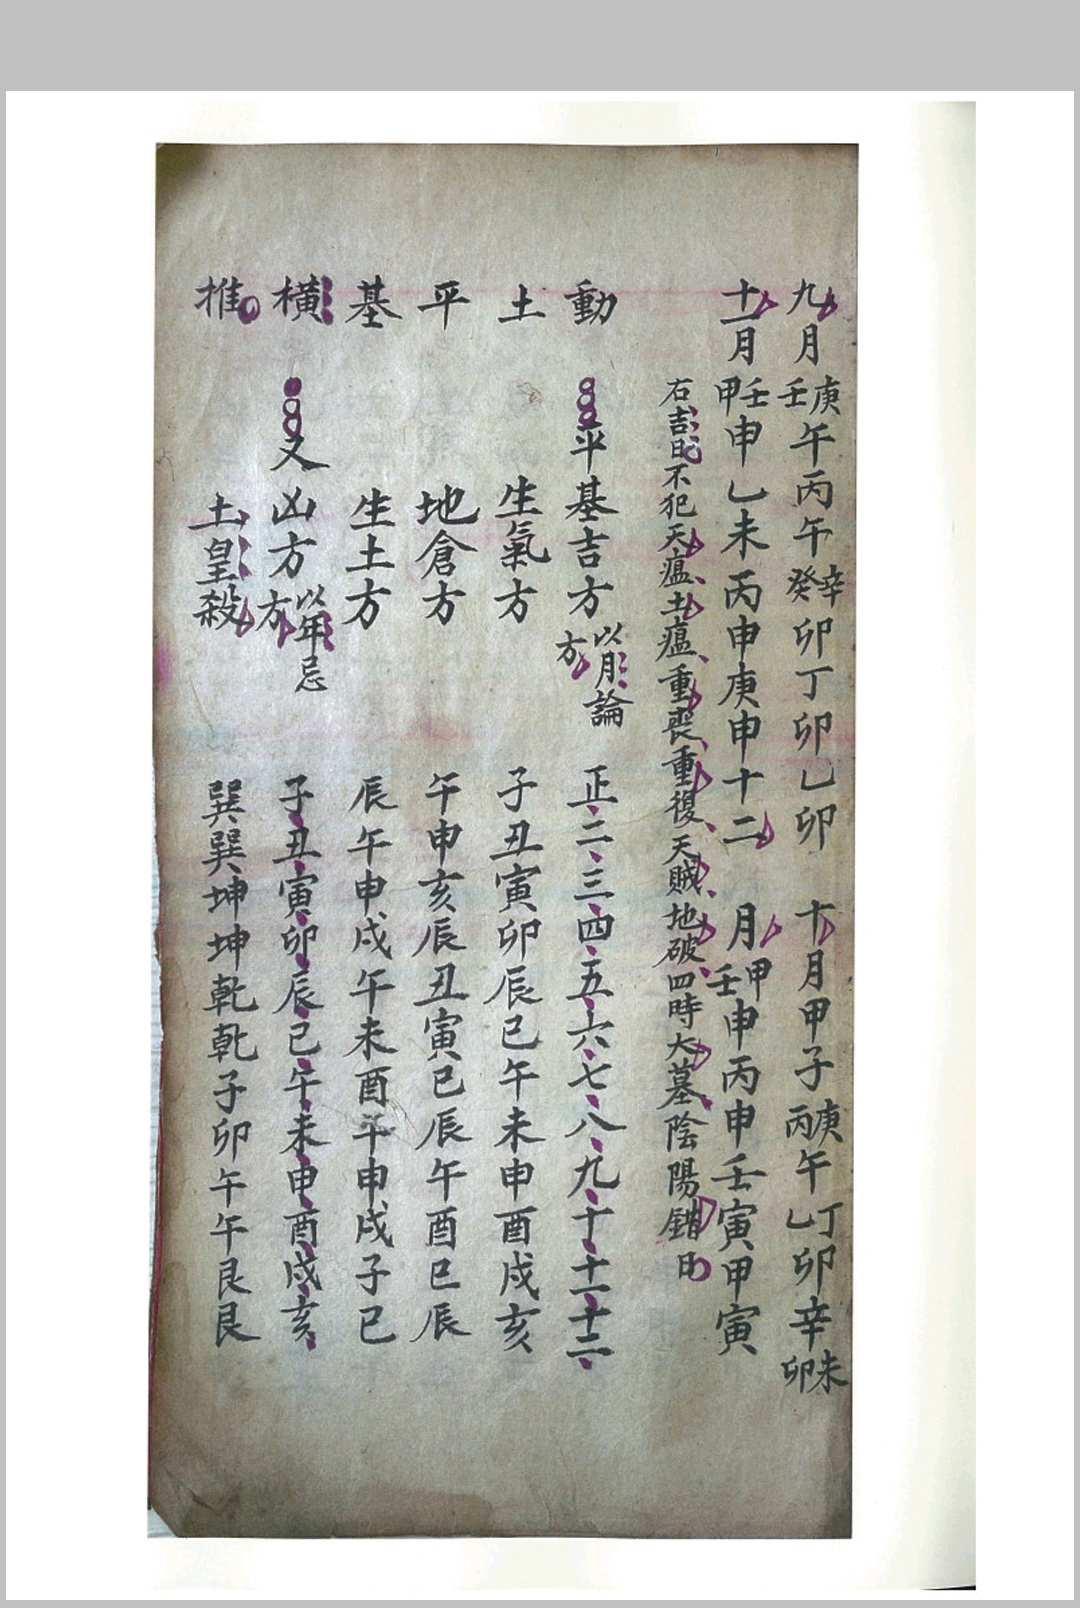 九月庚壬午丙午辛癸卯丁卯乙卯　十月甲子庚丙午丁乙卯辛未卯
十一月壬甲申乙未丙申庚申十二月甲壬申丙申壬寅甲寅
右吉日不犯天瘟土瘟重喪重復天賊地破四時大墓陰陽錯日
動　平基吉方以月論方　正二三四五六七八九十十一十二
土　生氣方　子丑寅卯辰巳午未申酉戌亥
平　地倉方　午申亥辰丑寅巳辰午酉巳辰
基　生土方　辰午申戌午未酉午申戌子巳
橫　又凶方以年忌方　子丑寅卯辰巳午未申酉戌亥
推　土皇殺　巽巽坤坤乾乾子卯午午艮艮